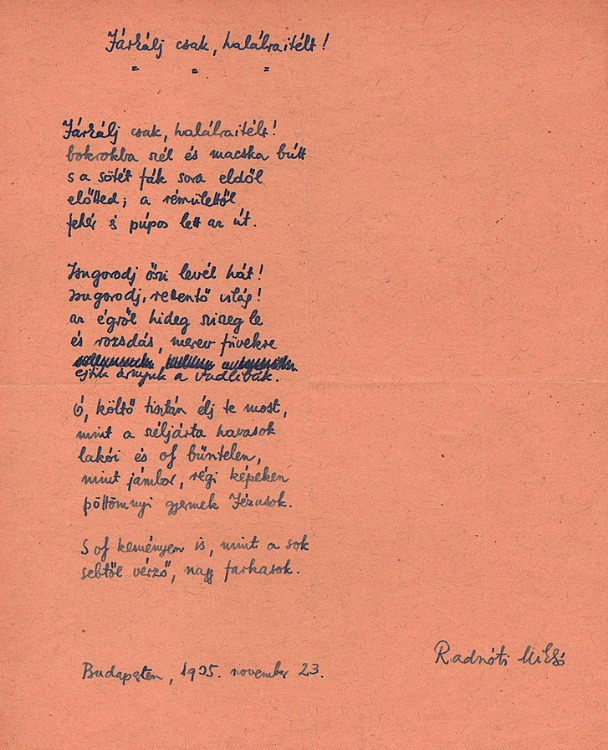 Járkálj csak, halálraitélt!
Járkálj csak, halálraitélt!
bokrokba szél és macska bútt
s a sötét fák sora eldől
előtted; a rémülettől
fehér és púpos lett az út.
Zsugorodj őszi levél hát!
zsugorodj, rettentő világ!
az égről hideg sziszeg le
és rozsdás, merev füvekre
ejtik árnyuk a vadlibák.
Ó, költő tisztán élj te most,
mint a széljárta havasok
lakói és oly bűntelen,
mint jámbor, régi képeken
pöttömnyi gyermek Jézusok.
S oly keményen is, mint a sok
sebtől vérző, nagy farkasok.
Radnóti Miklós
Budapesten, 1935. november 23.